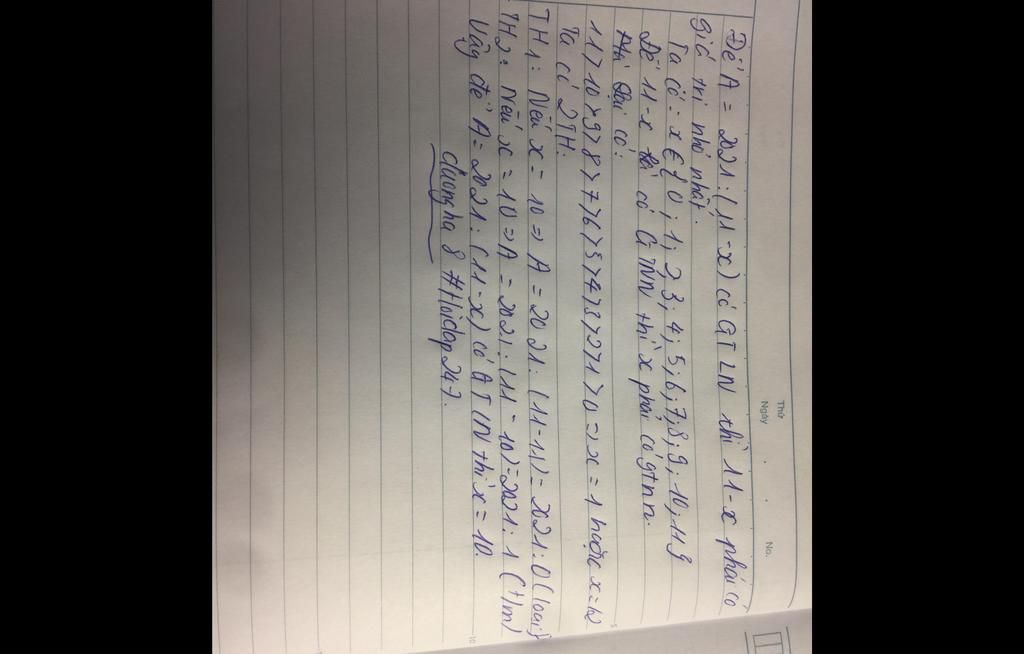 Thứ
Ngày
No.
Để A = 2021 : (11-x) có GTLN thì 11-x phải có
giá trị nhỏ nhất.
Ta có - x ∈ {0; 1; 2, 3; 4; 5; 6; 7; 8; 9; 10; 11}
Để 11-x có GTNN thì x phải có gtnn.
lại có:
11>10>9>8>7>6>5>4>3>2>1>0 => x = 1 hoặc x =
Ta có 2TH:
TH1: Nếu x = 10 => A = 2021 : (11-11) = 2021 : 0 (loại)
TH2: Nếu x = 10 => A = 2021 : (11-10) = 2021 : 1 (t/m)
Vậy để A = 2021 : (11-x) có GTLN thì x = 10.
duongha 8 #Hoidap247.